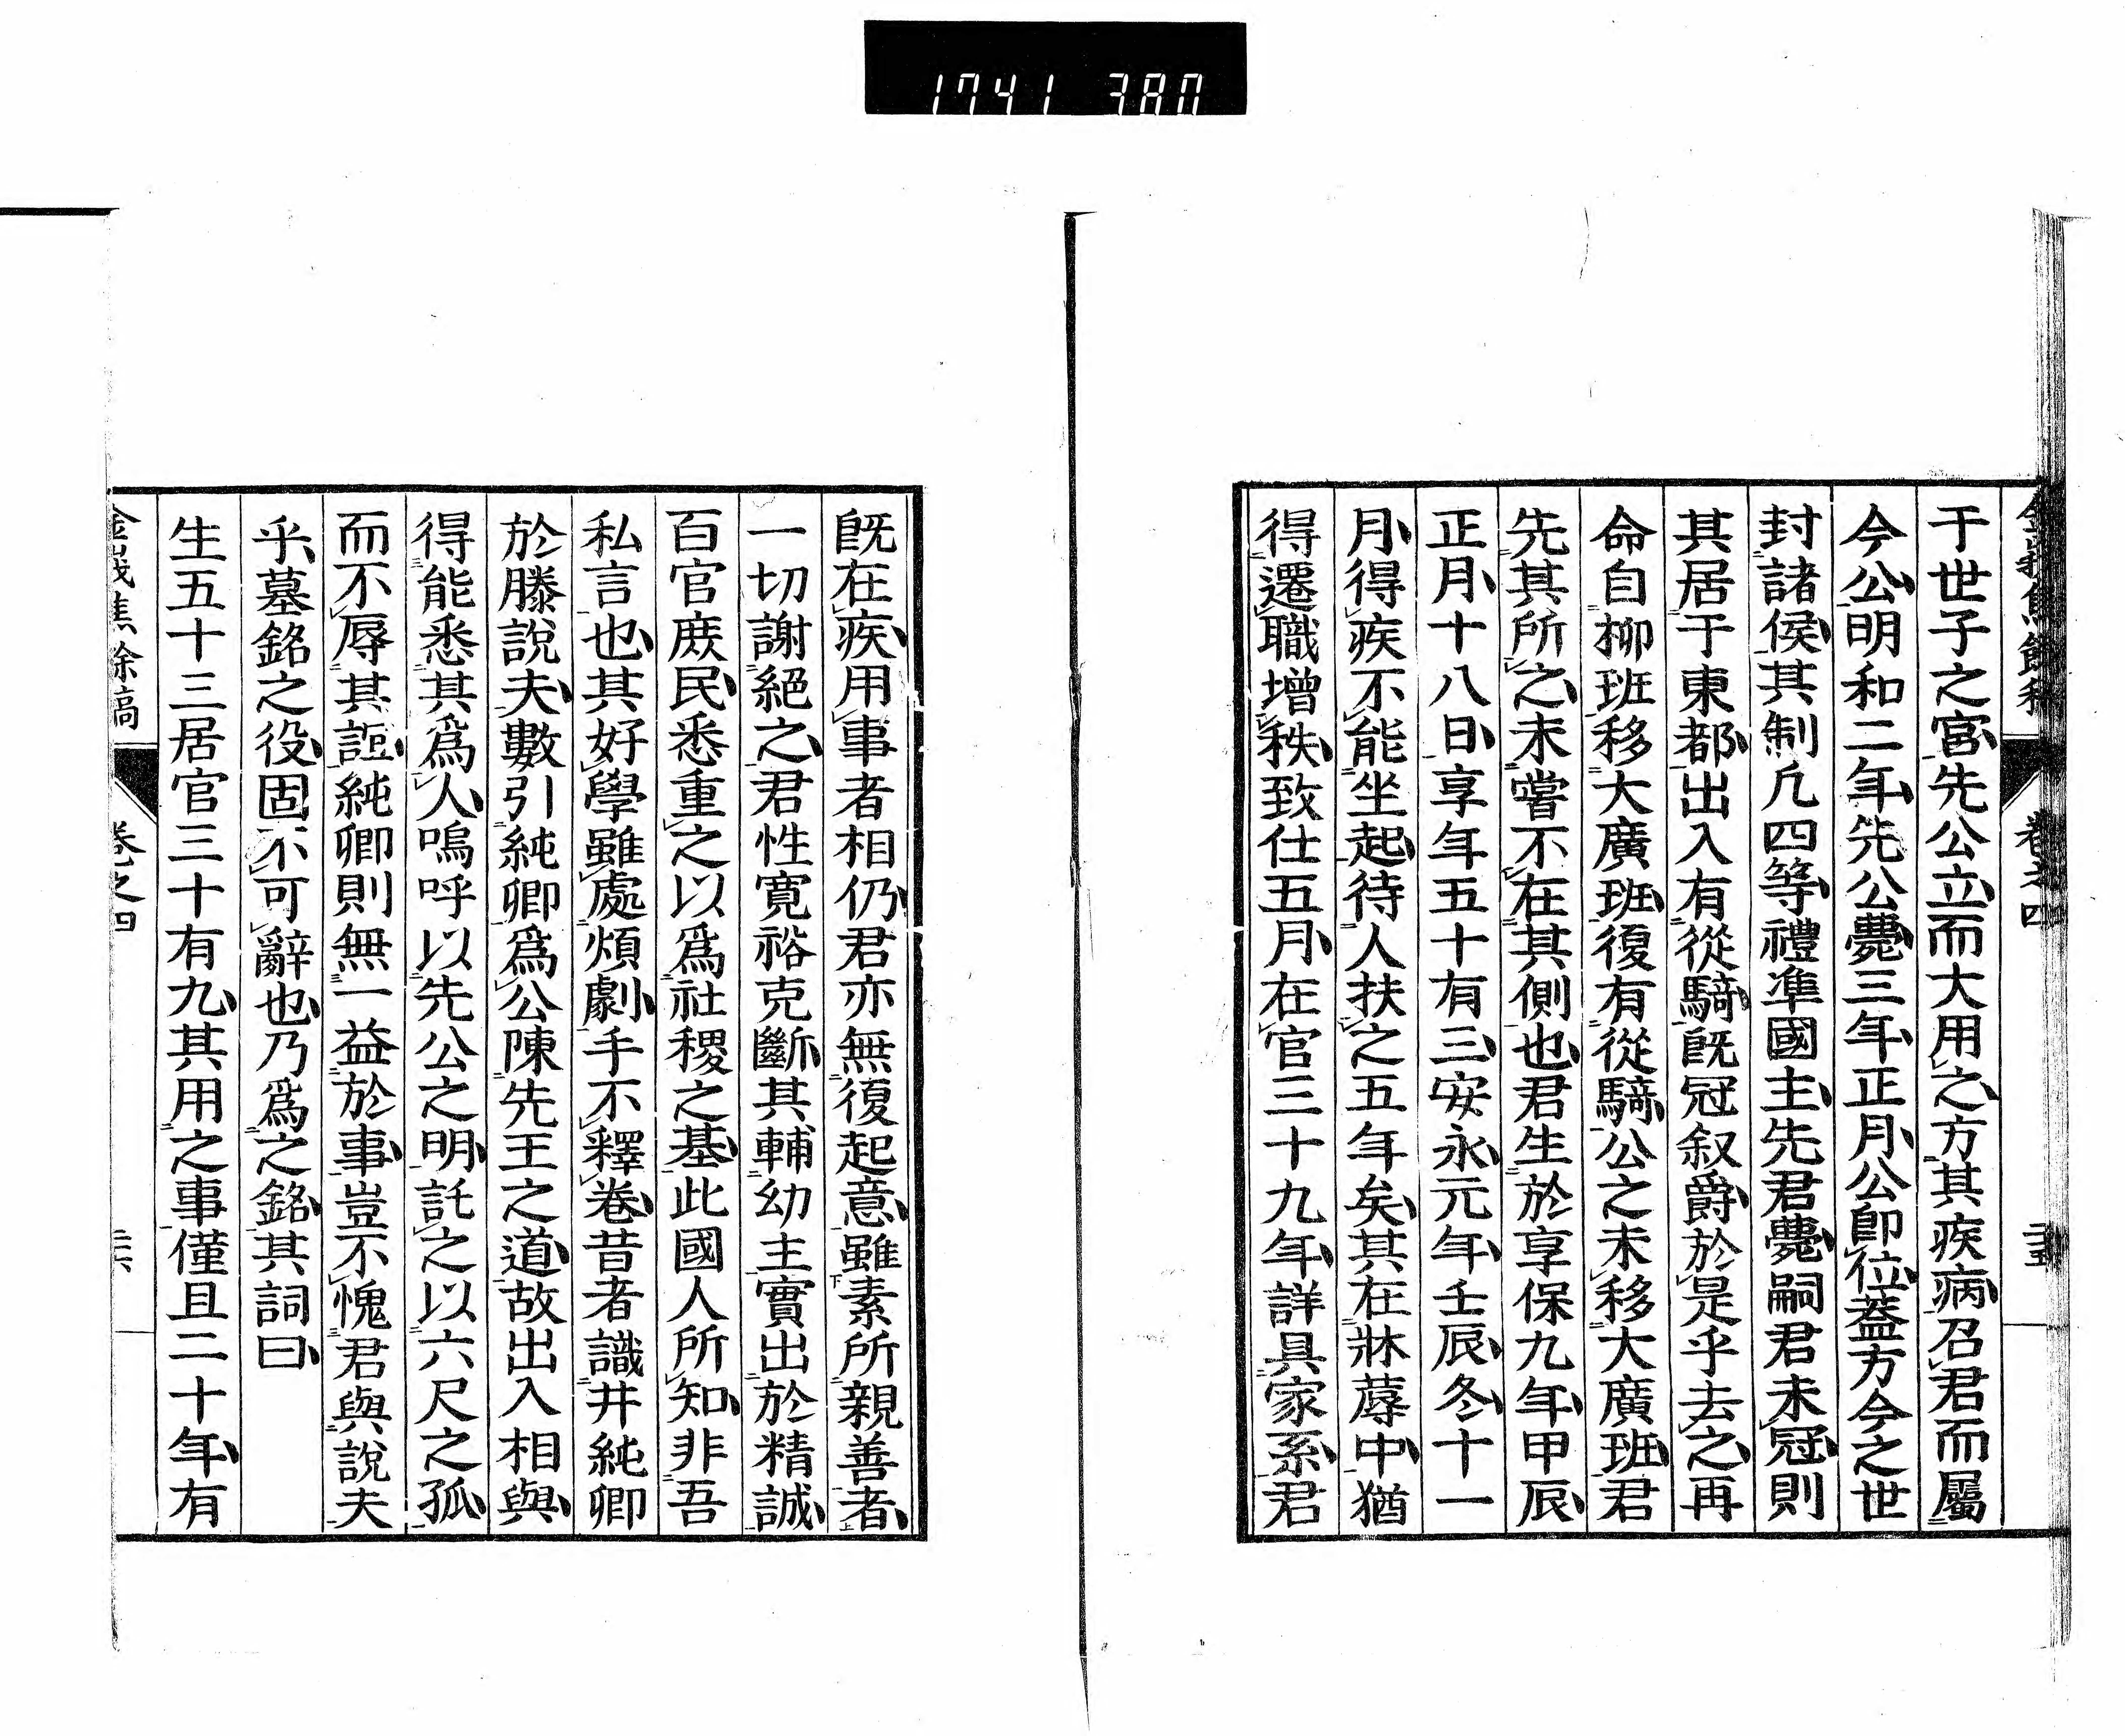 1741 380
于世子之宮先公立而大用之方其疾病召君而屬
今公明和二年先公薨三年正月公卽位蓋方今之世
封諸侯其制凡四等禮準國主先君薨嗣君未冠則
其居于東都出入有從騎旣冠叙爵於是乎去之再
命自柳班移大廣班復有從騎公之未移大廣班君
先其所之未嘗不在其側也君生於享保九年甲辰
正月十八日享年五十有三安永元年壬辰冬十一
月得疾不能坐起待人扶之五年矣其在牀蓐中猶
得遷職增秩致仕五月在官三十九年詳具家系君
卷之四
二十五
旣在疾用事者相仍君亦無復起意雖素所親善者
一切謝絕之君性寛裕克斷其輔幼主實出於精誠
百官庶民悉重之以爲社稷之基此國人所知非吾
私言也其好學雖處煩劇手不釋卷昔者識井純卿
於滕說夫數引純卿爲公陳先王之道故出入相與
得能悉其爲人嗚呼以先公之明託之以六尺之孤
而不辱其詎純卿則無一益於事豈不愧君與說夫
乎墓銘之役固不可辭也乃爲之銘其詞曰
生五十三居官三十有九其用之事僅且二十年有
金峩焦餘稿
卷之四
二十六